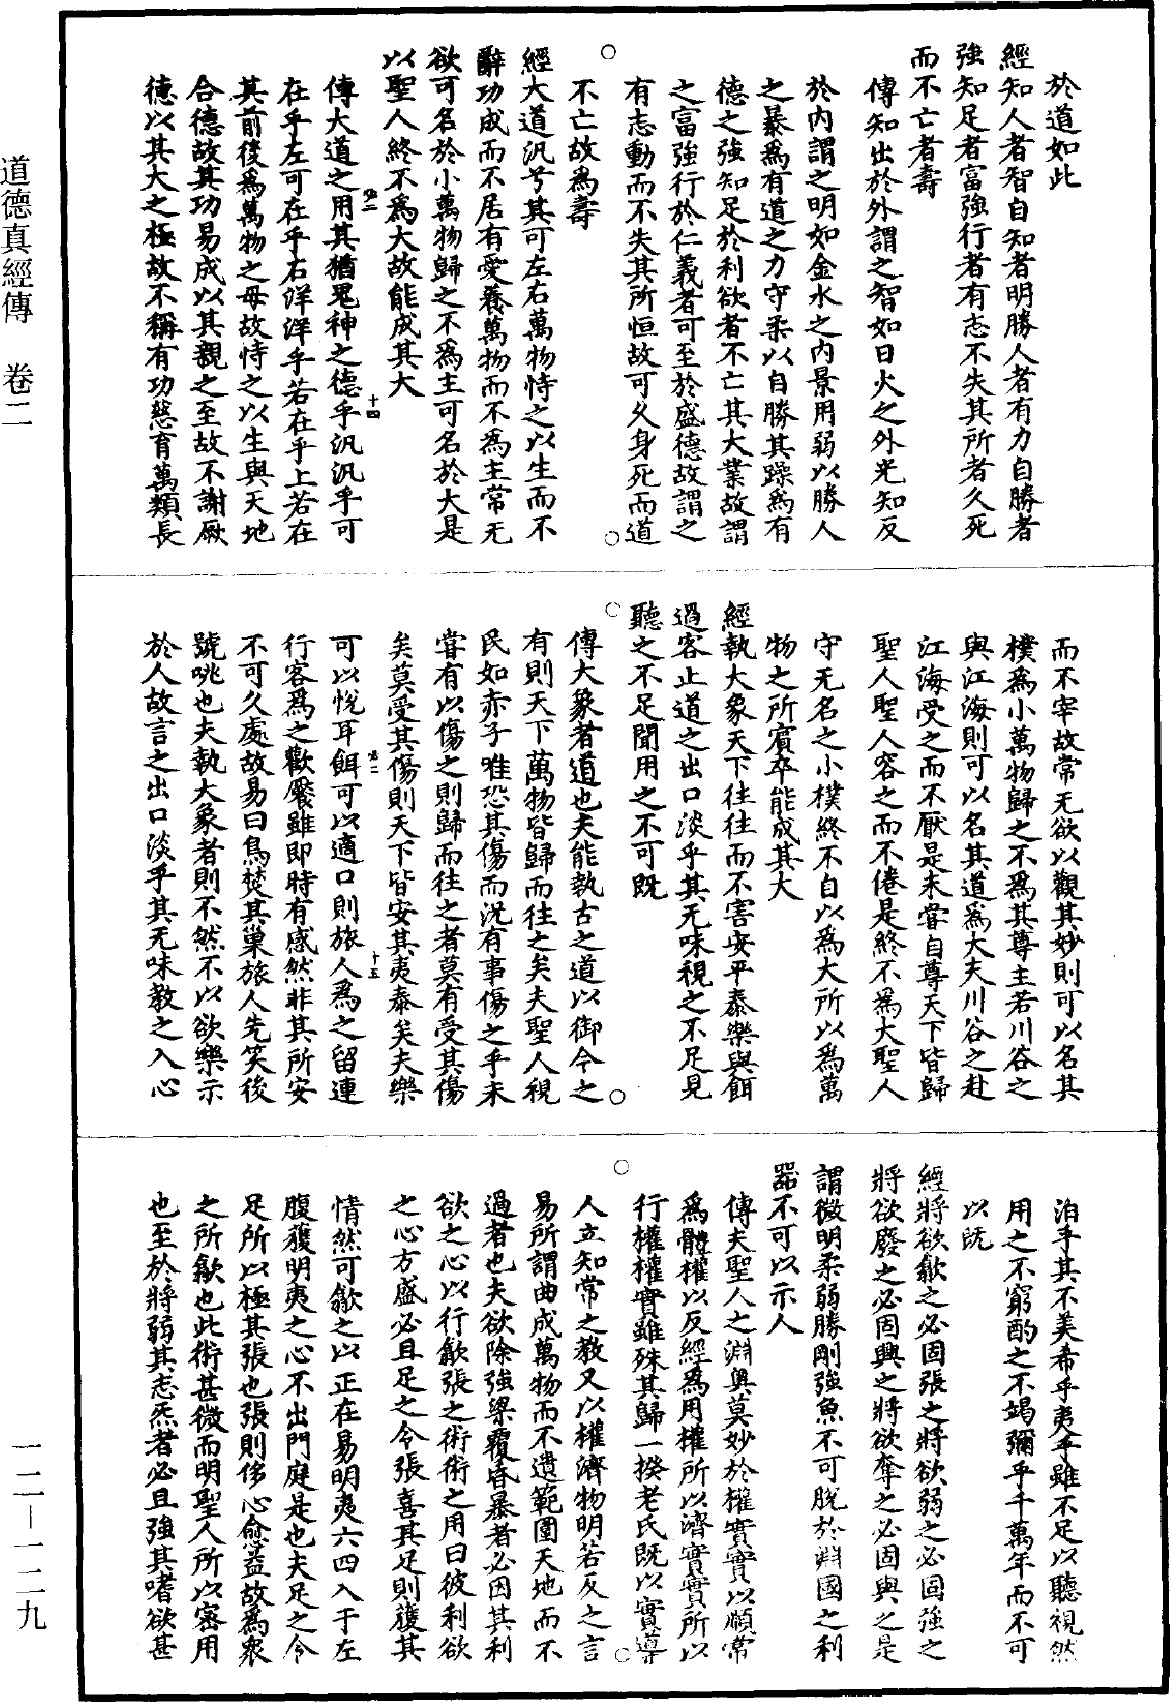 於道如此
經知人者智自知者明勝人者有力自勝者
強知足者富強行者有志不失其所者久死
而不亡者壽
傳知出於外謂之智如日火之外光知反
於內謂之明如金水之內景用弱以勝人
之暴為有道之力守柔以自勝其躁為有
德之強知足於利欲者不亡其大業故謂
之富強行於仁義者可至於盛德故謂之
有志動而不失其所恒故可久身死而道
不亡故為壽
經大道汎兮其可左右萬物恃之以生而不
辭功成而不居有愛養萬物而不為主常无
欲可名於小萬物歸之不為主可名於大是
以聖人終不為大故能成其大
十四
傳大道之用其猶鬼神之德乎汎汎乎可
在乎左可在乎右洋洋乎若在乎上若在
其前後為萬物之母故恃之以生與天地
合德故其功易成以其親之至故不謝厥
德以其大之極故不稱有功慈育萬類長
而不宰故常无欲以觀其妙則可以名其
樸為小萬物歸之不為其尊主若川谷之
與江海則可以名其道為大夫川谷之赴
江海受之而不厭是未嘗自尊天下皆歸
聖人聖人容之而不倦是終不為大聖人
守无名之小樸終不自以為大所以為萬
物之所賓卒能成其大
經執大象天下往往而不害安平泰樂與餌
過客止道之出口淡乎其无味視之不足見
聽之不足聞用之不可既
傳大象者道也夫能執古之道以御今之
有則天下萬物皆歸而往之矣夫聖人視
民如赤子唯恐其傷而況有事傷之乎未
嘗有以傷之則歸而往之者莫有受其傷
矣莫受其傷則天下皆安其夷泰矣夫樂
十五
可以悅耳餌可以適口則旅人為之留連
行客為之歡饜雖即時有感然非其所安
不可久處故易曰鳥焚其巢旅人先笑後
號咷也夫執大象者則不然不以欲樂示
於人故言之出口淡乎其无味教之入心
泊乎其不美希乎夷乎雖不足以聽視然
用之不窮酌之不竭彌乎千萬年而不可
以既
經將欲歙之必固張之將欲弱之必固強之
將欲廢之必固興之將欲奪之必固與之是
謂微明柔弱勝剛強魚不可脫於淵國之利
器不可以示人
傳夫聖人之淵奧莫妙於權實實以順常
為體權以反經為用權所以濟實實所以
行權權實雖殊其歸一揆老氏既以實導
人立知常之教又以權濟物明若反之言
易所謂曲成萬物而不遺範圍天地而不
過者也夫欲除強梁覆昏暴者必因其利
欲之心以行歙張之術術之用曰彼利欲
之心方盛必且足之令張喜其足則蒦其
情然可歙之以正在易明夷六四入于左
腹蒦明夷之心不出門庭是也夫足之令
足所以極其張也張則侈心愈益故為眾
之所歙也此術甚微而明聖人所以密用
也至於將弱其志炁者必且強其嗜欲甚
道德真經傳 卷二
一二－一二九